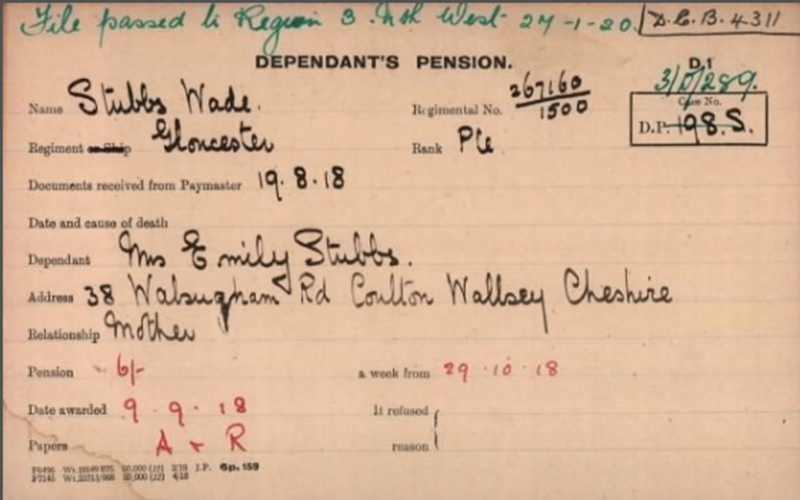 File passed to Region 3. Nth West 27-1-20. D.C.B. 4311
DEPENDANT'S PENSION.
D.1
3/D/289.
Name Stubbs Wade. Regimental No. 267160
1500
Case No.
D.P. 198.S.
Regiment or Ship Gloncester Rank Pte
Documents received from Paymaster 19.8.18
Date and cause of death
Dependant Mrs Emily Stubbs.
Address 38 Walsugham Rd Coulton Wallsey Cheshire
Relationship Mother
Pension 6/- a week from 29.10.18
Date awarded 9.9.18 If refused
Papers A + R reason
50,000 (12) 2/18 J.P. Gp. 159
50,000 (12) 4/18